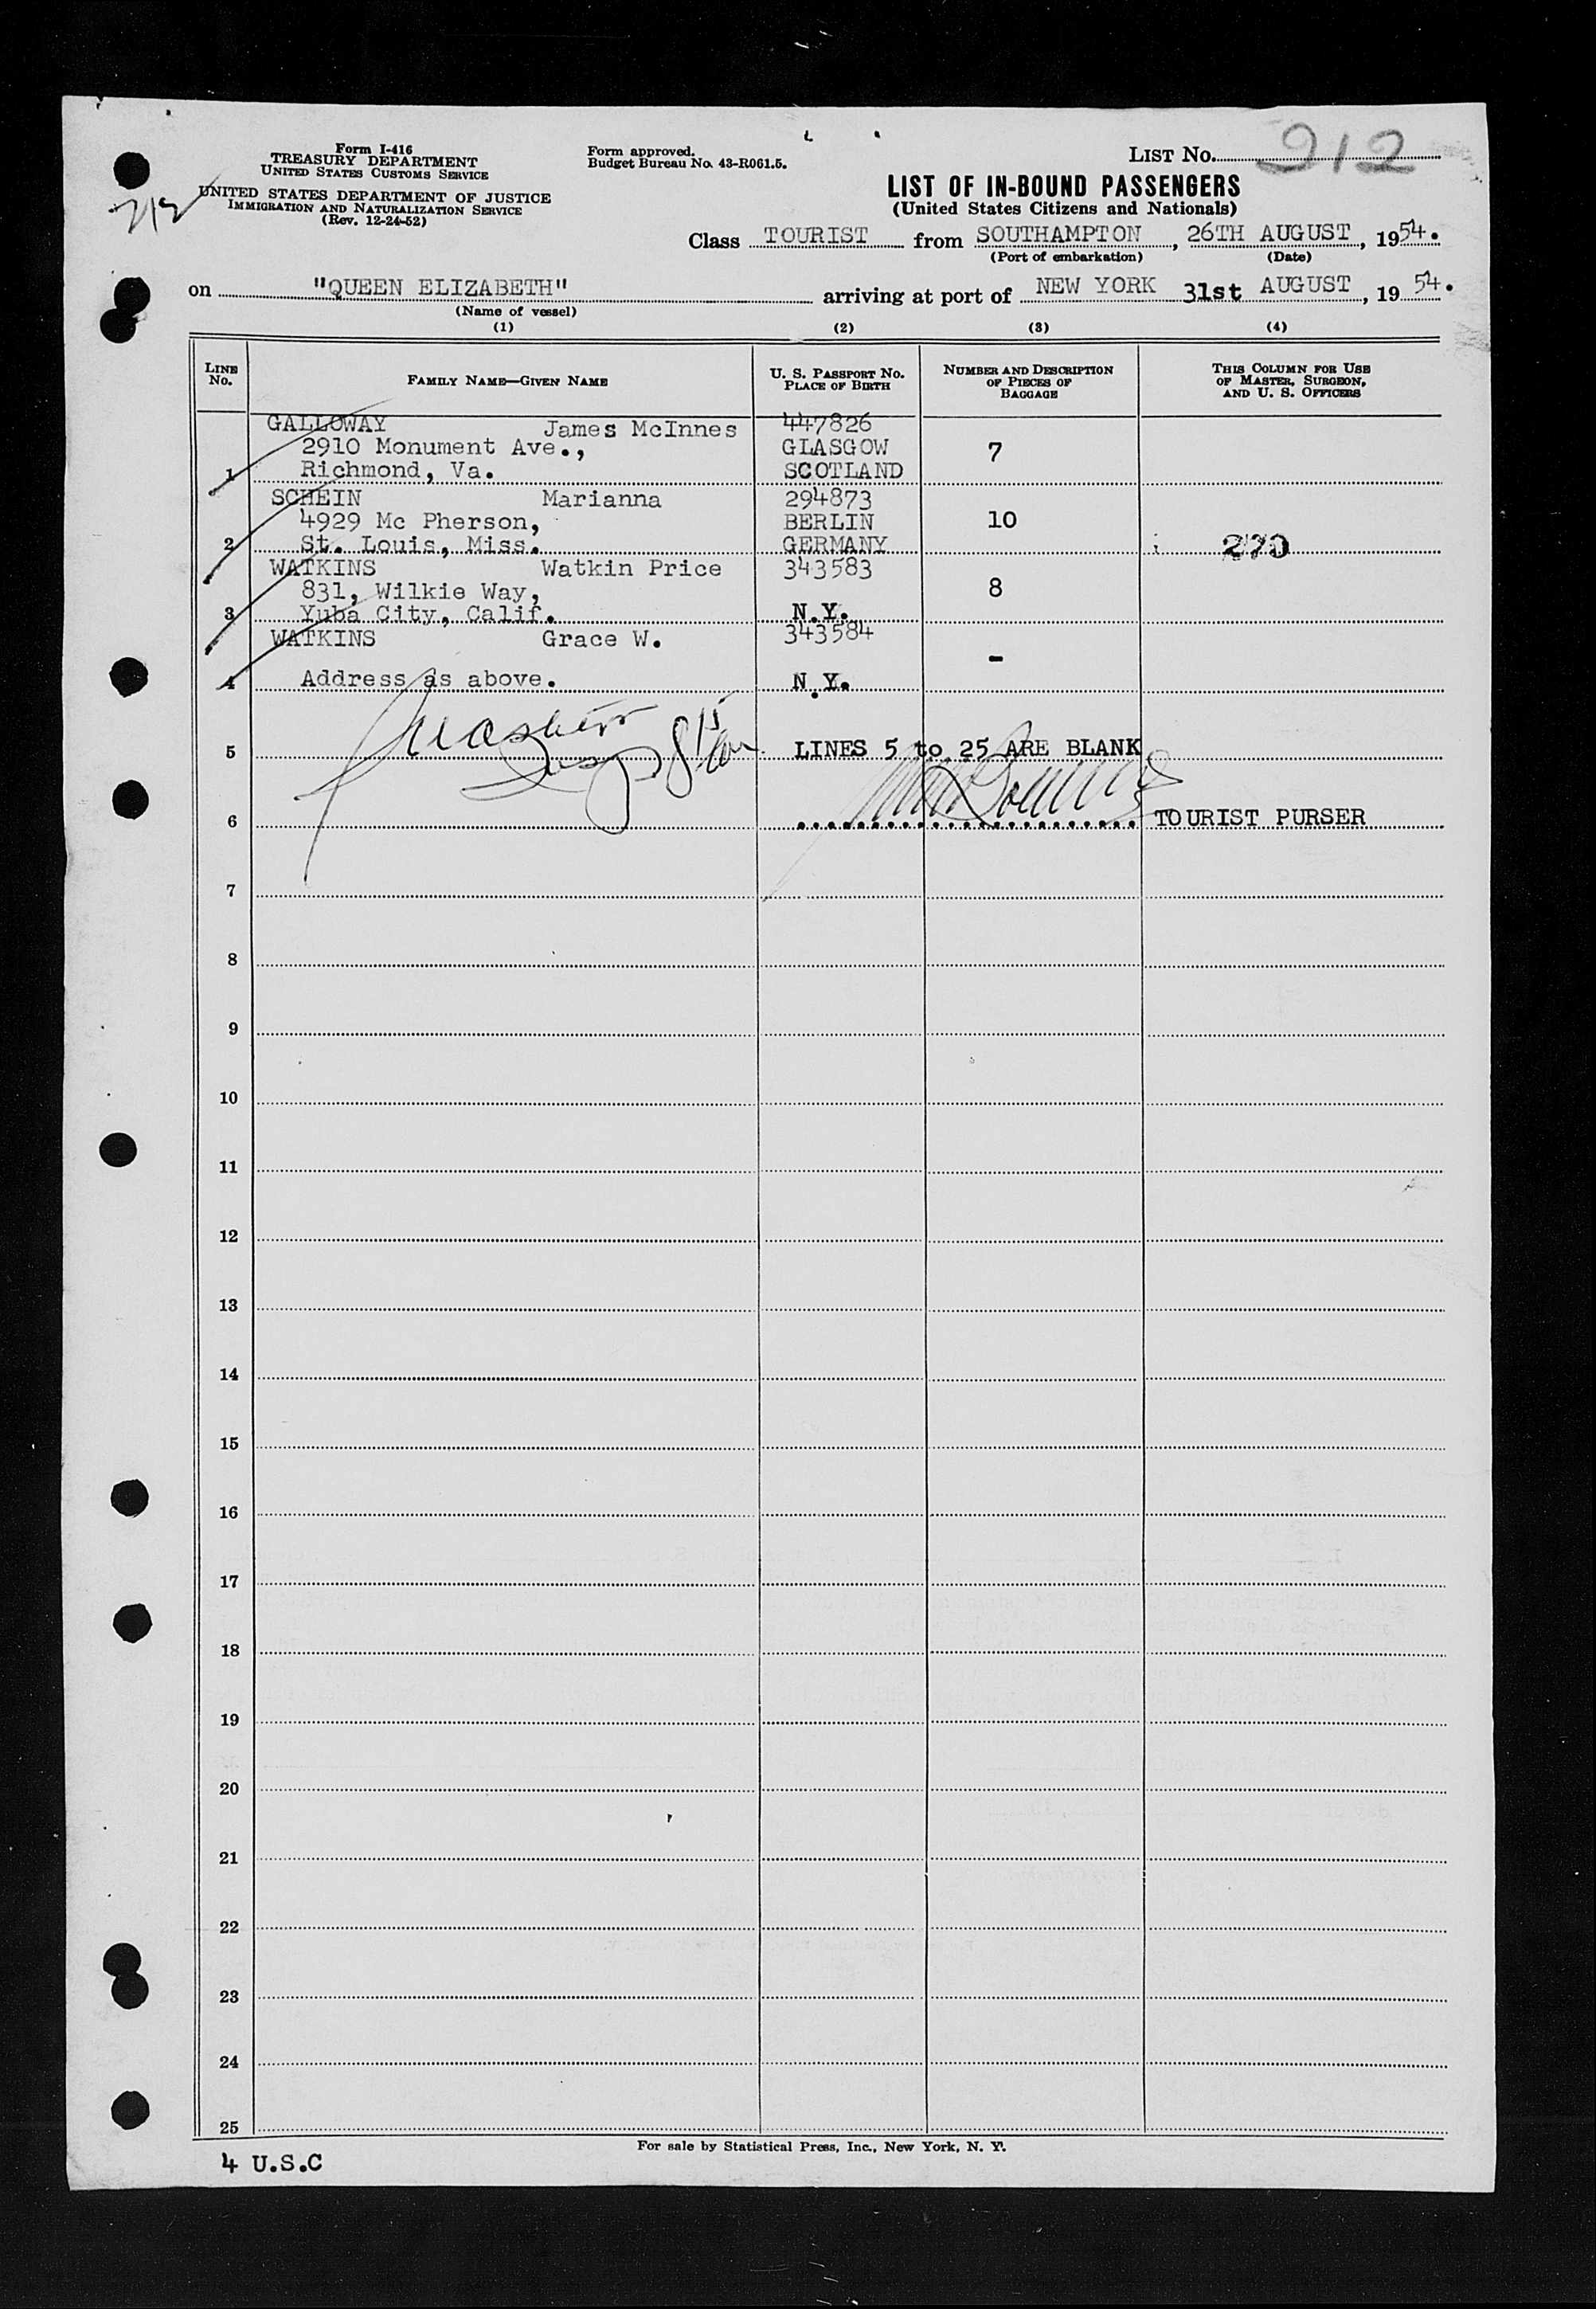 Form I-416
TREASURY DEPARTMENT
UNITED STATES CUSTOMS SERVICE
UNITED STATES DEPARTMENT OF JUSTICE
IMMIGRATION AND NATURALIZATION SERVICE
(Rev. 12-24-52)
212
Form approved.
Budget Bureau No. 43-R061.5.
LIST No. 212
LIST OF IN-BOUND PASSENGERS
(United States Citizens and Nationals)
Class TOURIST from SOUTHAMPTON, 26TH AUGUST, 1954.
(Port of embarkation) (Date)
on "QUEEN ELIZABETH" arriving at port of NEW YORK 31st AUGUST, 19 54.
(Name of vessel)
(1) (2) (3) (4)
LINE No. FAMILY NAME—GIVEN NAME U. S. PASSPORT No. PLACE OF BIRTH NUMBER AND DESCRIPTION OF PIECES OF BAGGAGE THIS COLUMN FOR USE OF MASTER, SURGEON, AND U. S. OFFICERS
GALLOWAY James McInnes 447826
2910 Monument Ave., GLASGOW 7
1 Richmond, Va. SCOTLAND
SCHEIN Marianna 294873
4929 Mc Pherson, BERLIN 10
2 St. Louis, Miss. GERMANY 270
WATKINS Watkin Price 343583
831, Wilkie Way, 8
3 Yuba City, Calif. N.Y.
WATKINS Grace W. 343584
-
4 Address as above. N.Y.
5 LINES 5 to 25 ARE BLANK
6 TOURIST PURSER
7
8
9
10
11
12
13
14
15
16
17
18
19
20
21
22
23
24
25
For sale by Statistical Press, Inc., New York, N. Y.
4 U.S.C